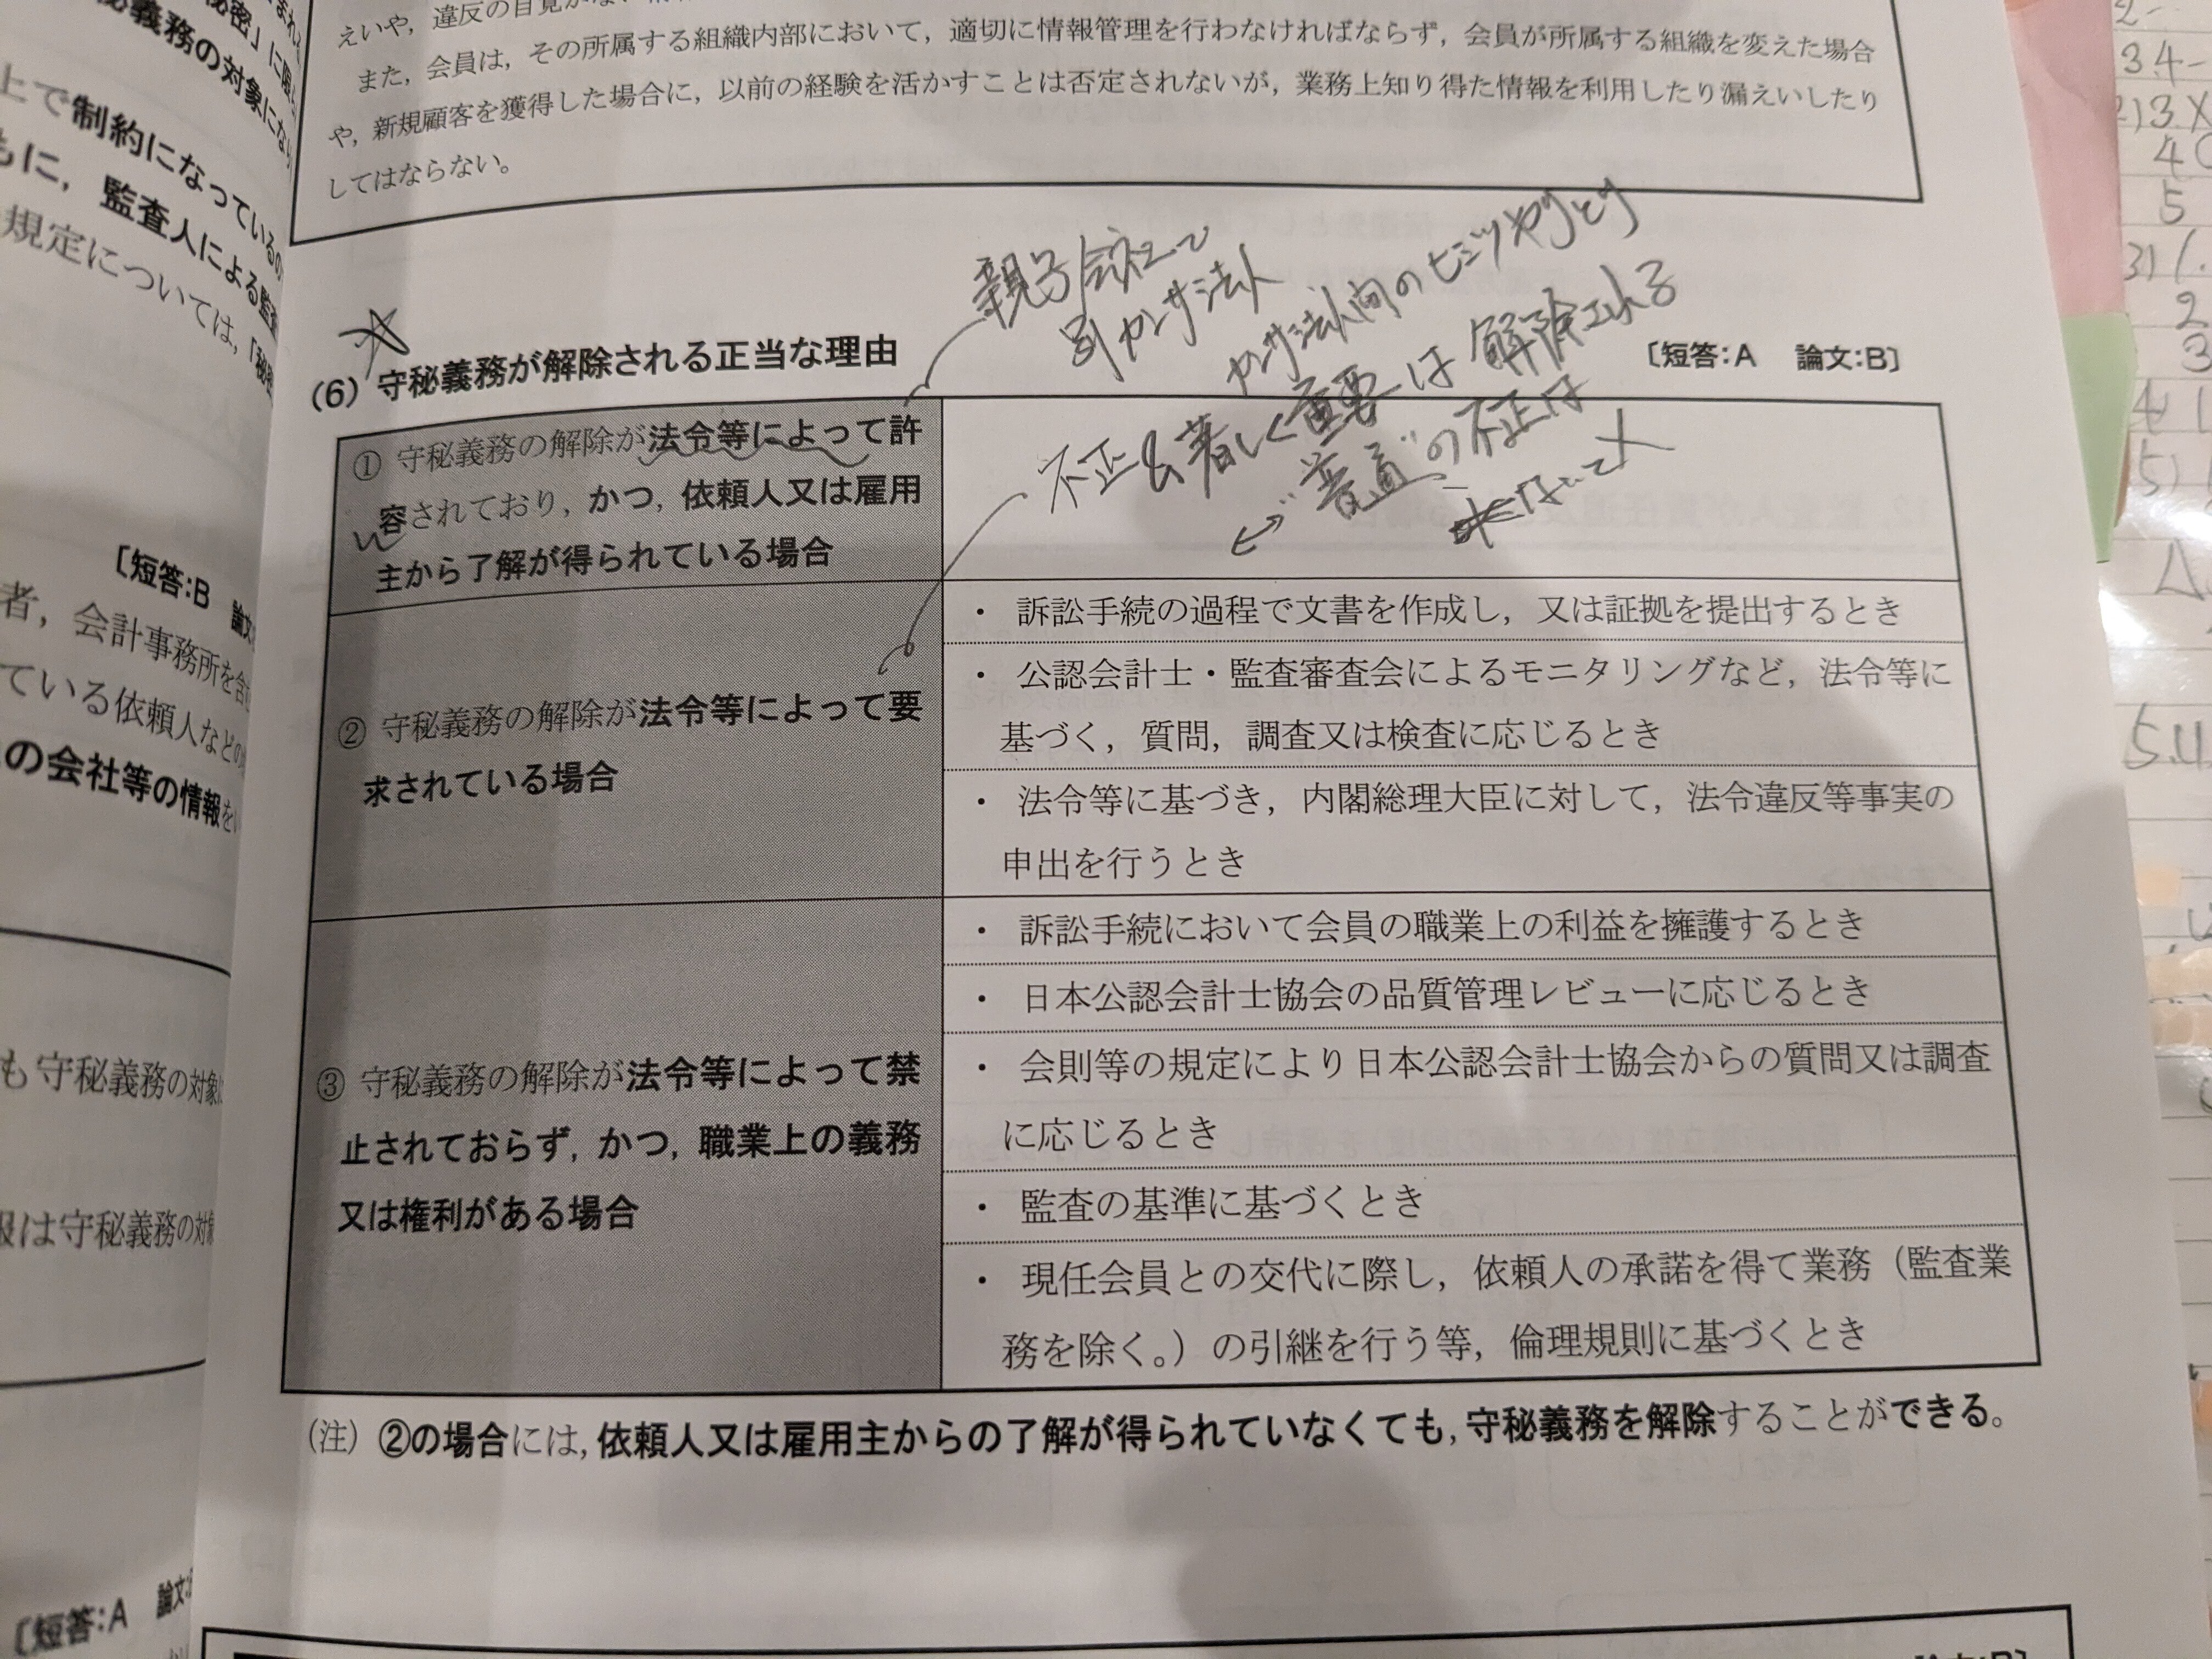 えいや，違反の自覚がない
また，会員は，その所属する組織内部において，適切に情報管理を行わなければならず，会員が所属する組織を変えた場合
や，新規顧客を獲得した場合に，以前の経験を活かすことは否定されないが，業務上知り得た情報を利用したり漏えいしたり
してはならない。
親子会社で
別カンサ法人
カンサ法人間のヒミツやりとり
(6) 守秘義務が解除される正当な理由
〔短答：A 論文：B〕
不正&著しく重要は解除される
↔"普通"の不正は
① 守秘義務の解除が法令等によって許
容されており，かつ，依頼人又は雇用
主から了解が得られている場合
② 守秘義務の解除が法令等によって要
求されている場合
・ 訴訟手続の過程で文書を作成し，又は証拠を提出するとき
・ 公認会計士・監査審査会によるモニタリングなど，法令等に
基づく，質問，調査又は検査に応じるとき
・ 法令等に基づき，内閣総理大臣に対して，法令違反等事実の
申出を行うとき
③ 守秘義務の解除が法令等によって禁
止されておらず，かつ，職業上の義務
又は権利がある場合
・ 訴訟手続において会員の職業上の利益を擁護するとき
・ 日本公認会計士協会の品質管理レビューに応じるとき
・ 会則等の規定により日本公認会計士協会からの質問又は調査
に応じるとき
・ 監査の基準に基づくとき
・ 現任会員との交代に際し，依頼人の承諾を得て業務（監査業
務を除く。）の引継を行う等，倫理規則に基づくとき
（注） ②の場合には，依頼人又は雇用主からの了解が得られていなくても，守秘義務を解除することができる。
義務の対象にな
上で制約になっている
もに，監査人による監査
規定については，「秘密
〔短答：B 論文
者，会計事務所を含
ている依頼人などの
の会社等の情報を
も守秘義務の対象
報は守秘義務の対象
〔短答：A 論文